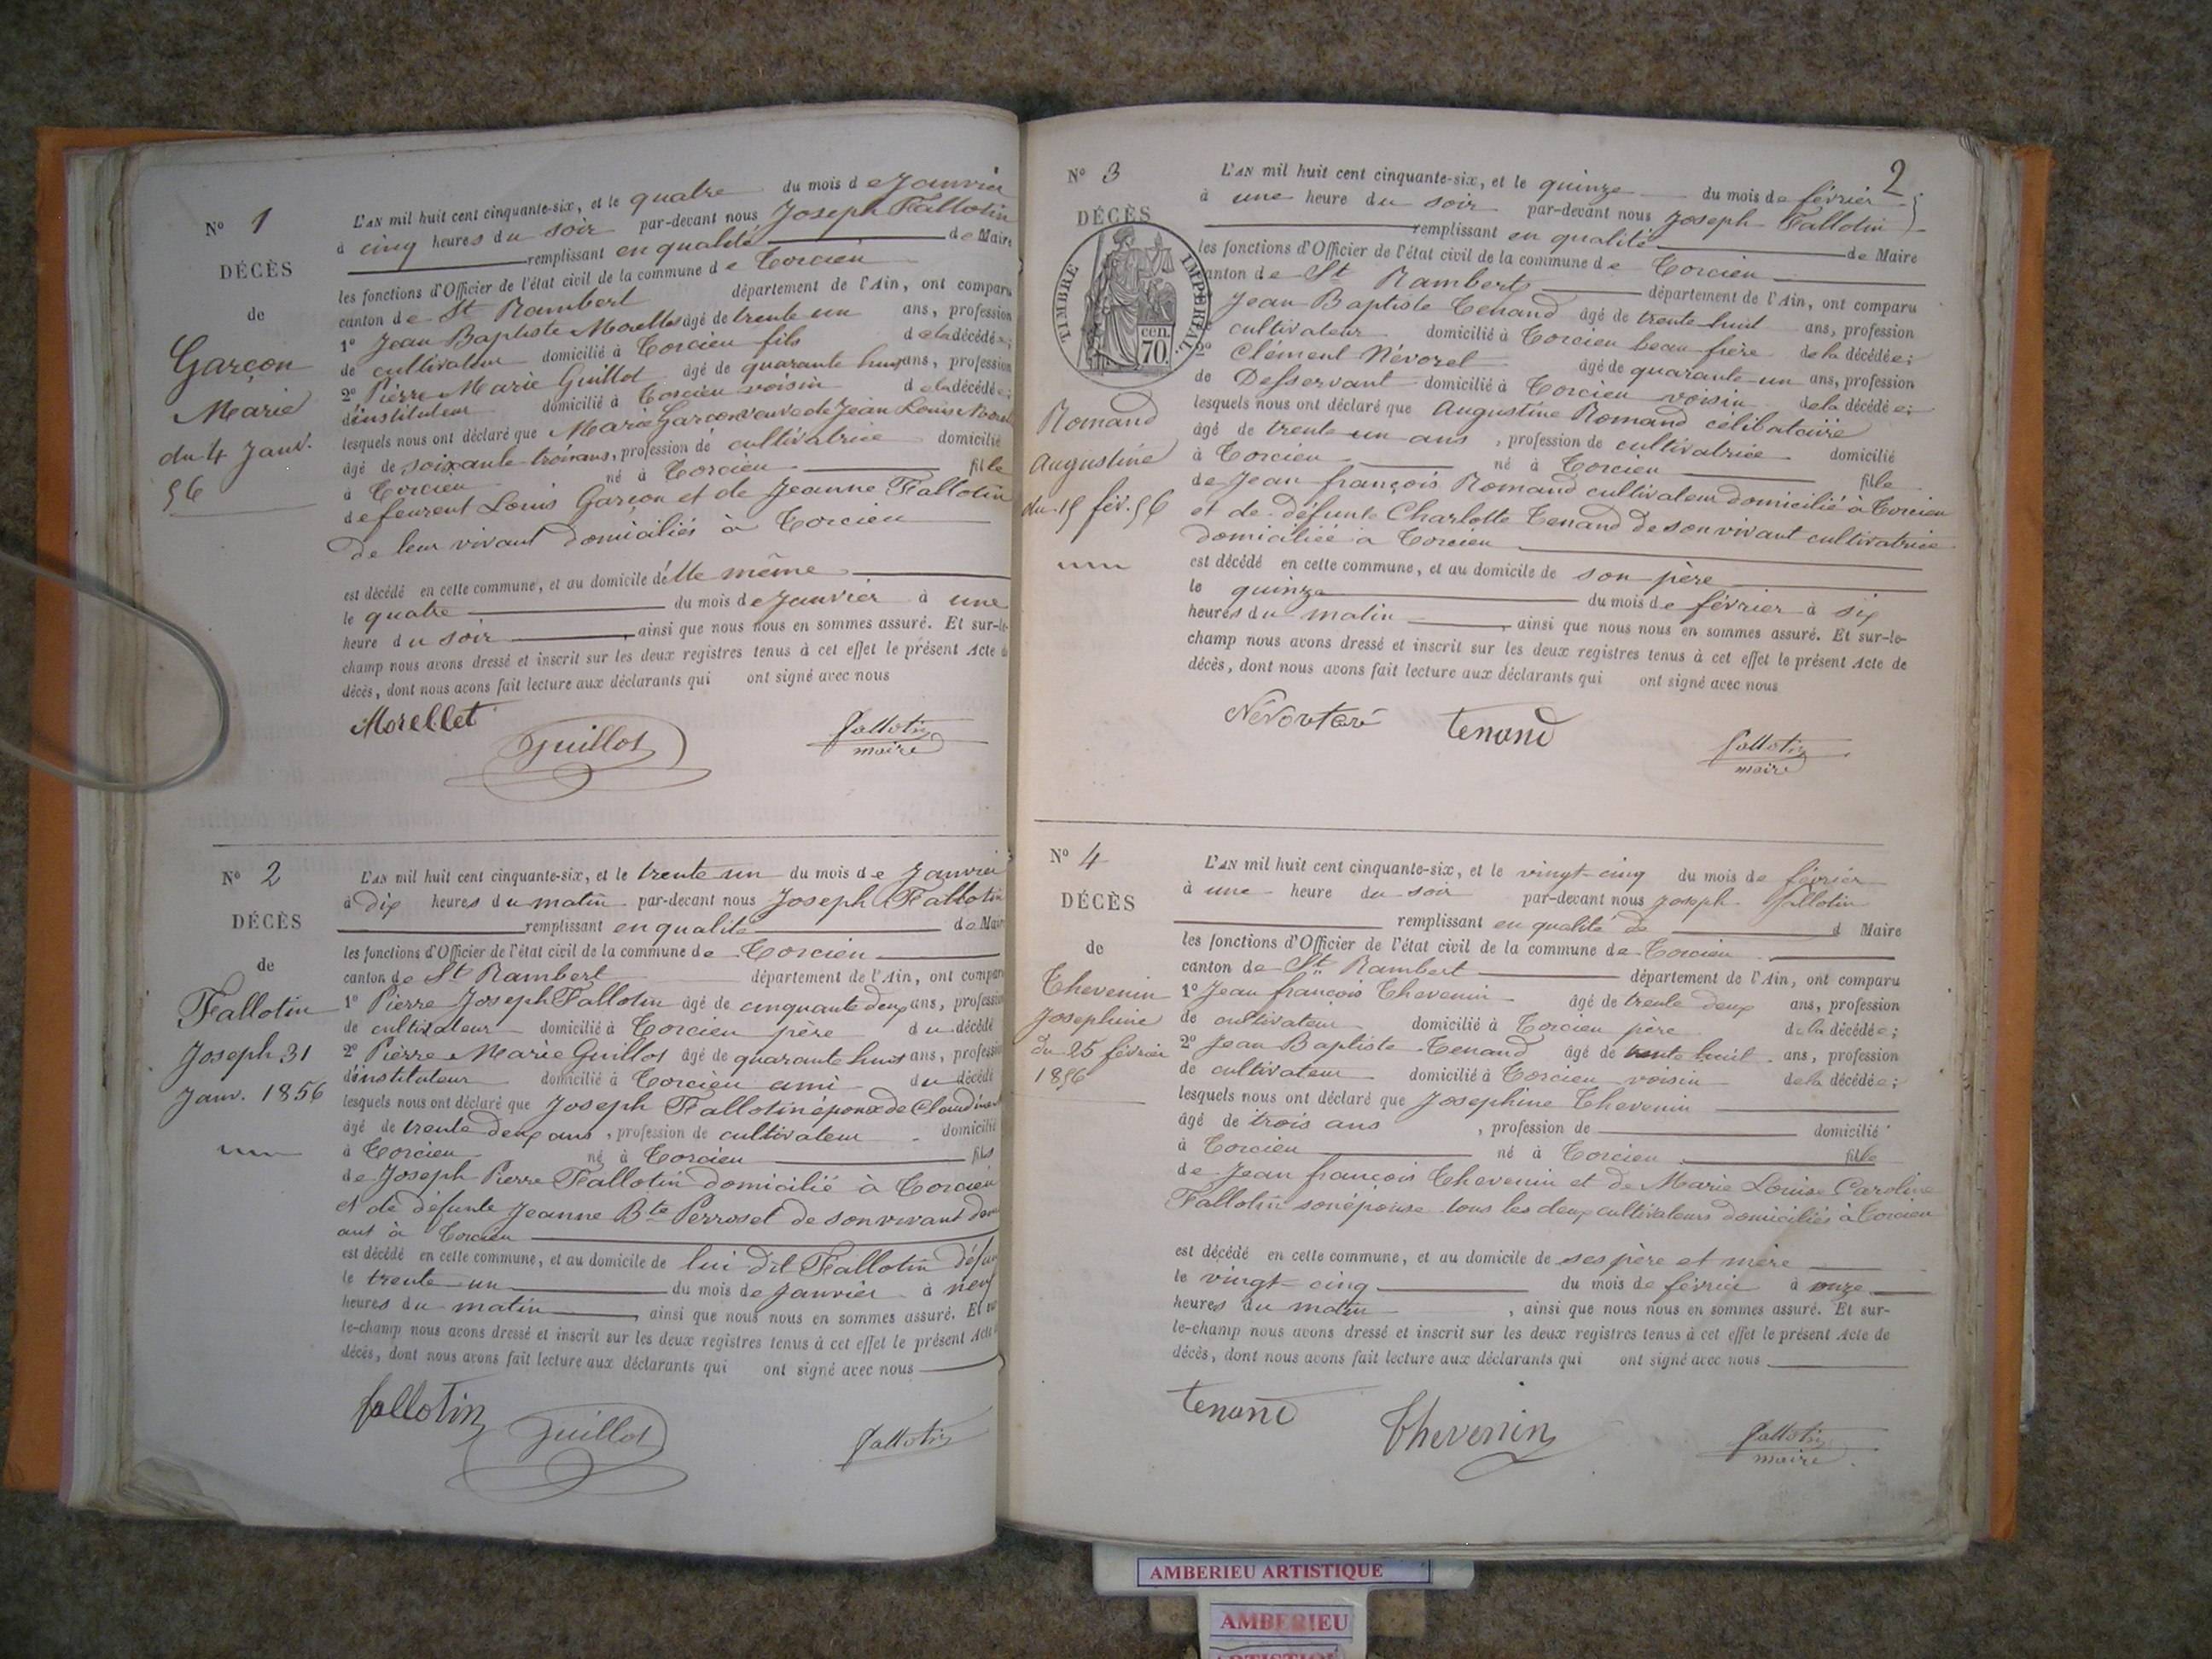 Nº 1
DÉCÈS
de
Garçon
Marie
du 4 Janv.
56
L'AN mil huit cent cinquante-six, et le quatre du mois de Janvier
à cinq heures du soir par-devant nous Joseph Fallotin
remplissant en qualité de Maire
les fonctions d'Officier de l'état civil de la commune de Torcieu
canton de St Rambert département de l'Ain, ont comparu
1º Jean Baptiste Morellet âgé de trente un ans, profession
de cultivateur domicilié à Torcieu fils de la décédée;
2º Pierre Marie Guillot âgé de quarante huit ans, profession
d'instituteur domicilié à Torcieu voisin de la décédée;
lesquels nous ont déclaré que Marie Garçon veuve de Jean Louis
âgé de soixante trois ans, profession de cultivatrice domicilié
à Torcieu né à Torcieu fille
de feurent Louis Garçon et de Jeanne Fallotin
de leur vivant domiciliés à Torcieu
est décédé en cette commune, et au domicile d'elle même
le quatre du mois de Janvier à une
heure du soir, ainsi que nous nous en sommes assuré. Et sur-le-
champ nous avons dressé et inscrit sur les deux registres tenus à cet effet le présent Acte de
décès, dont nous avons fait lecture aux déclarants qui ont signé avec nous
Morellet Guillot fallotin
maire
Nº 2
DÉCÈS
de
Fallotin
Joseph 31
Janv. 1856
L'AN mil huit cent cinquante-six, et le trente un du mois de Janvier
à dix heures du matin par-devant nous Joseph Fallotin
remplissant en qualité de Maire
les fonctions d'Officier de l'état civil de la commune de Torcieu
canton de St Rambert département de l'Ain, ont comparu
1º Pierre Joseph Fallotin âgé de cinquante deux ans, profession
de cultivateur domicilié à Torcieu père du décédé
2º Pierre Marie Guillot âgé de quarante huit ans, profession
d'instituteur domicilié à Torcieu ami du décédé
lesquels nous ont déclaré que Joseph Fallotin époux de
âgé de trente deux ans, profession de cultivateur domicilié
à Torcieu né à Torcieu fils
de Joseph Pierre Fallotin domicilié à Torcieu
et de défunte Jeanne Bte Perroset de son vivant
ant à Torcieu
est décédé en cette commune, et au domicile de lui dit Fallotin
le trente un du mois de Janvier à neuf
heures du matin, ainsi que nous nous en sommes assuré. Et sur
le-champ nous avons dressé et inscrit sur les deux registres tenus à cet effet le présent Acte
décès, dont nous avons fait lecture aux déclarants qui ont signé avec nous
fallotin Guillot fallotin
2
Nº 3
DÉCÈS
TIMBRE IMPÉRIAL
cen.
70.
Romand
Augustine
du 15 fév. 56
L'AN mil huit cent cinquante-six, et le quinze du mois de février
à une heure du soir par-devant nous Joseph Fallotin
remplissant en qualité de Maire
les fonctions d'Officier de l'état civil de la commune de Torcieu
canton de St Rambert département de l'Ain, ont comparu
Jean Baptiste Tenand âgé de trente huit ans, profession
cultivateur domicilié à Torcieu beau frère de la décédée;
2º Clément Névoret âgé de quarante un ans, profession
de Desservant domicilié à Torcieu voisin de la décédée;
lesquels nous ont déclaré que Augustine Romand célibataire
âgé de trente un ans, profession de cultivatrice domicilié
à Torcieu né à Torcieu fille
de Jean françois Romand cultivateur domicilié à Torcieu
et de défunte Charlotte Tenand de son vivant cultivatrice
domiciliée à Torcieu
est décédé en cette commune, et au domicile de son père
le quinze du mois de février à six
heures du matin, ainsi que nous nous en sommes assuré. Et sur-le-
champ nous avons dressé et inscrit sur les deux registres tenus à cet effet le présent Acte de
décès, dont nous avons fait lecture aux déclarants qui ont signé avec nous
Tenand fallotin
maire
Nº 4
DÉCÈS
de
Thevenin
Josephine
du 25 février
1856
L'AN mil huit cent cinquante-six, et le vingt-cinq du mois de février
à une heure du soir par-devant nous joseph fallotin
remplissant en qualité de d Maire
les fonctions d'Officier de l'état civil de la commune de Torcieu
canton de St Rambert département de l'Ain, ont comparu
1º Jean françois Thevenin âgé de trente deux ans, profession
de cultivateur domicilié à Torcieu père de la décédée;
2º Jean Baptiste Tenand âgé de trente huit ans, profession
de cultivateur domicilié à Torcieu voisin de la décédée;
lesquels nous ont déclaré que Josephine Thevenin
âgé de trois ans, profession de domicilié
à Torcieu né à Torcieu fille
de Jean françois Thevenin et de Marie Louise Caroline
Fallotin son épouse tous les deux cultivateurs domiciliés à Torcieu
est décédé en cette commune, et au domicile de ses père et mère
le vingt-cinq du mois de février à onze
heures du matin, ainsi que nous nous en sommes assuré. Et sur-
le-champ nous avons dressé et inscrit sur les deux registres tenus à cet effet le présent Acte de
décès, dont nous avons fait lecture aux déclarants qui ont signé avec nous
Tenand Thevenin fallotin
maire
AMBERIEU ARTISTIQUE
AMBERIEU
ARTISTIQUE